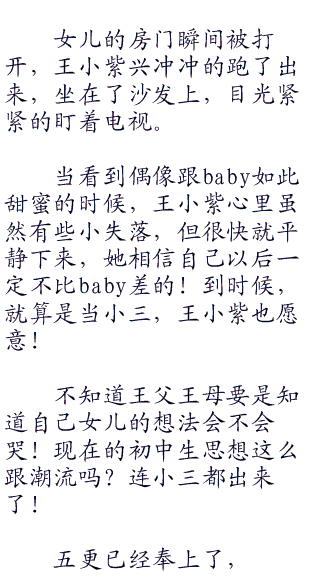 女儿的房门瞬间被打
开，王小紫兴冲冲的跑了出
来，坐在了沙发上，目光紧
紧的盯着电视。
当看到偶像跟baby如此
甜蜜的时候，王小紫心里虽
然有些小失落，但很快就平
静下来，她相信自己以后一
定不比baby差的！到时候，
就算是当小三，王小紫也愿
意！
不知道王父王母要是知
道自己女儿的想法会不会
哭！现在的初中生思想这么
跟潮流吗？连小三都出来
了！
五更已经奉上了，